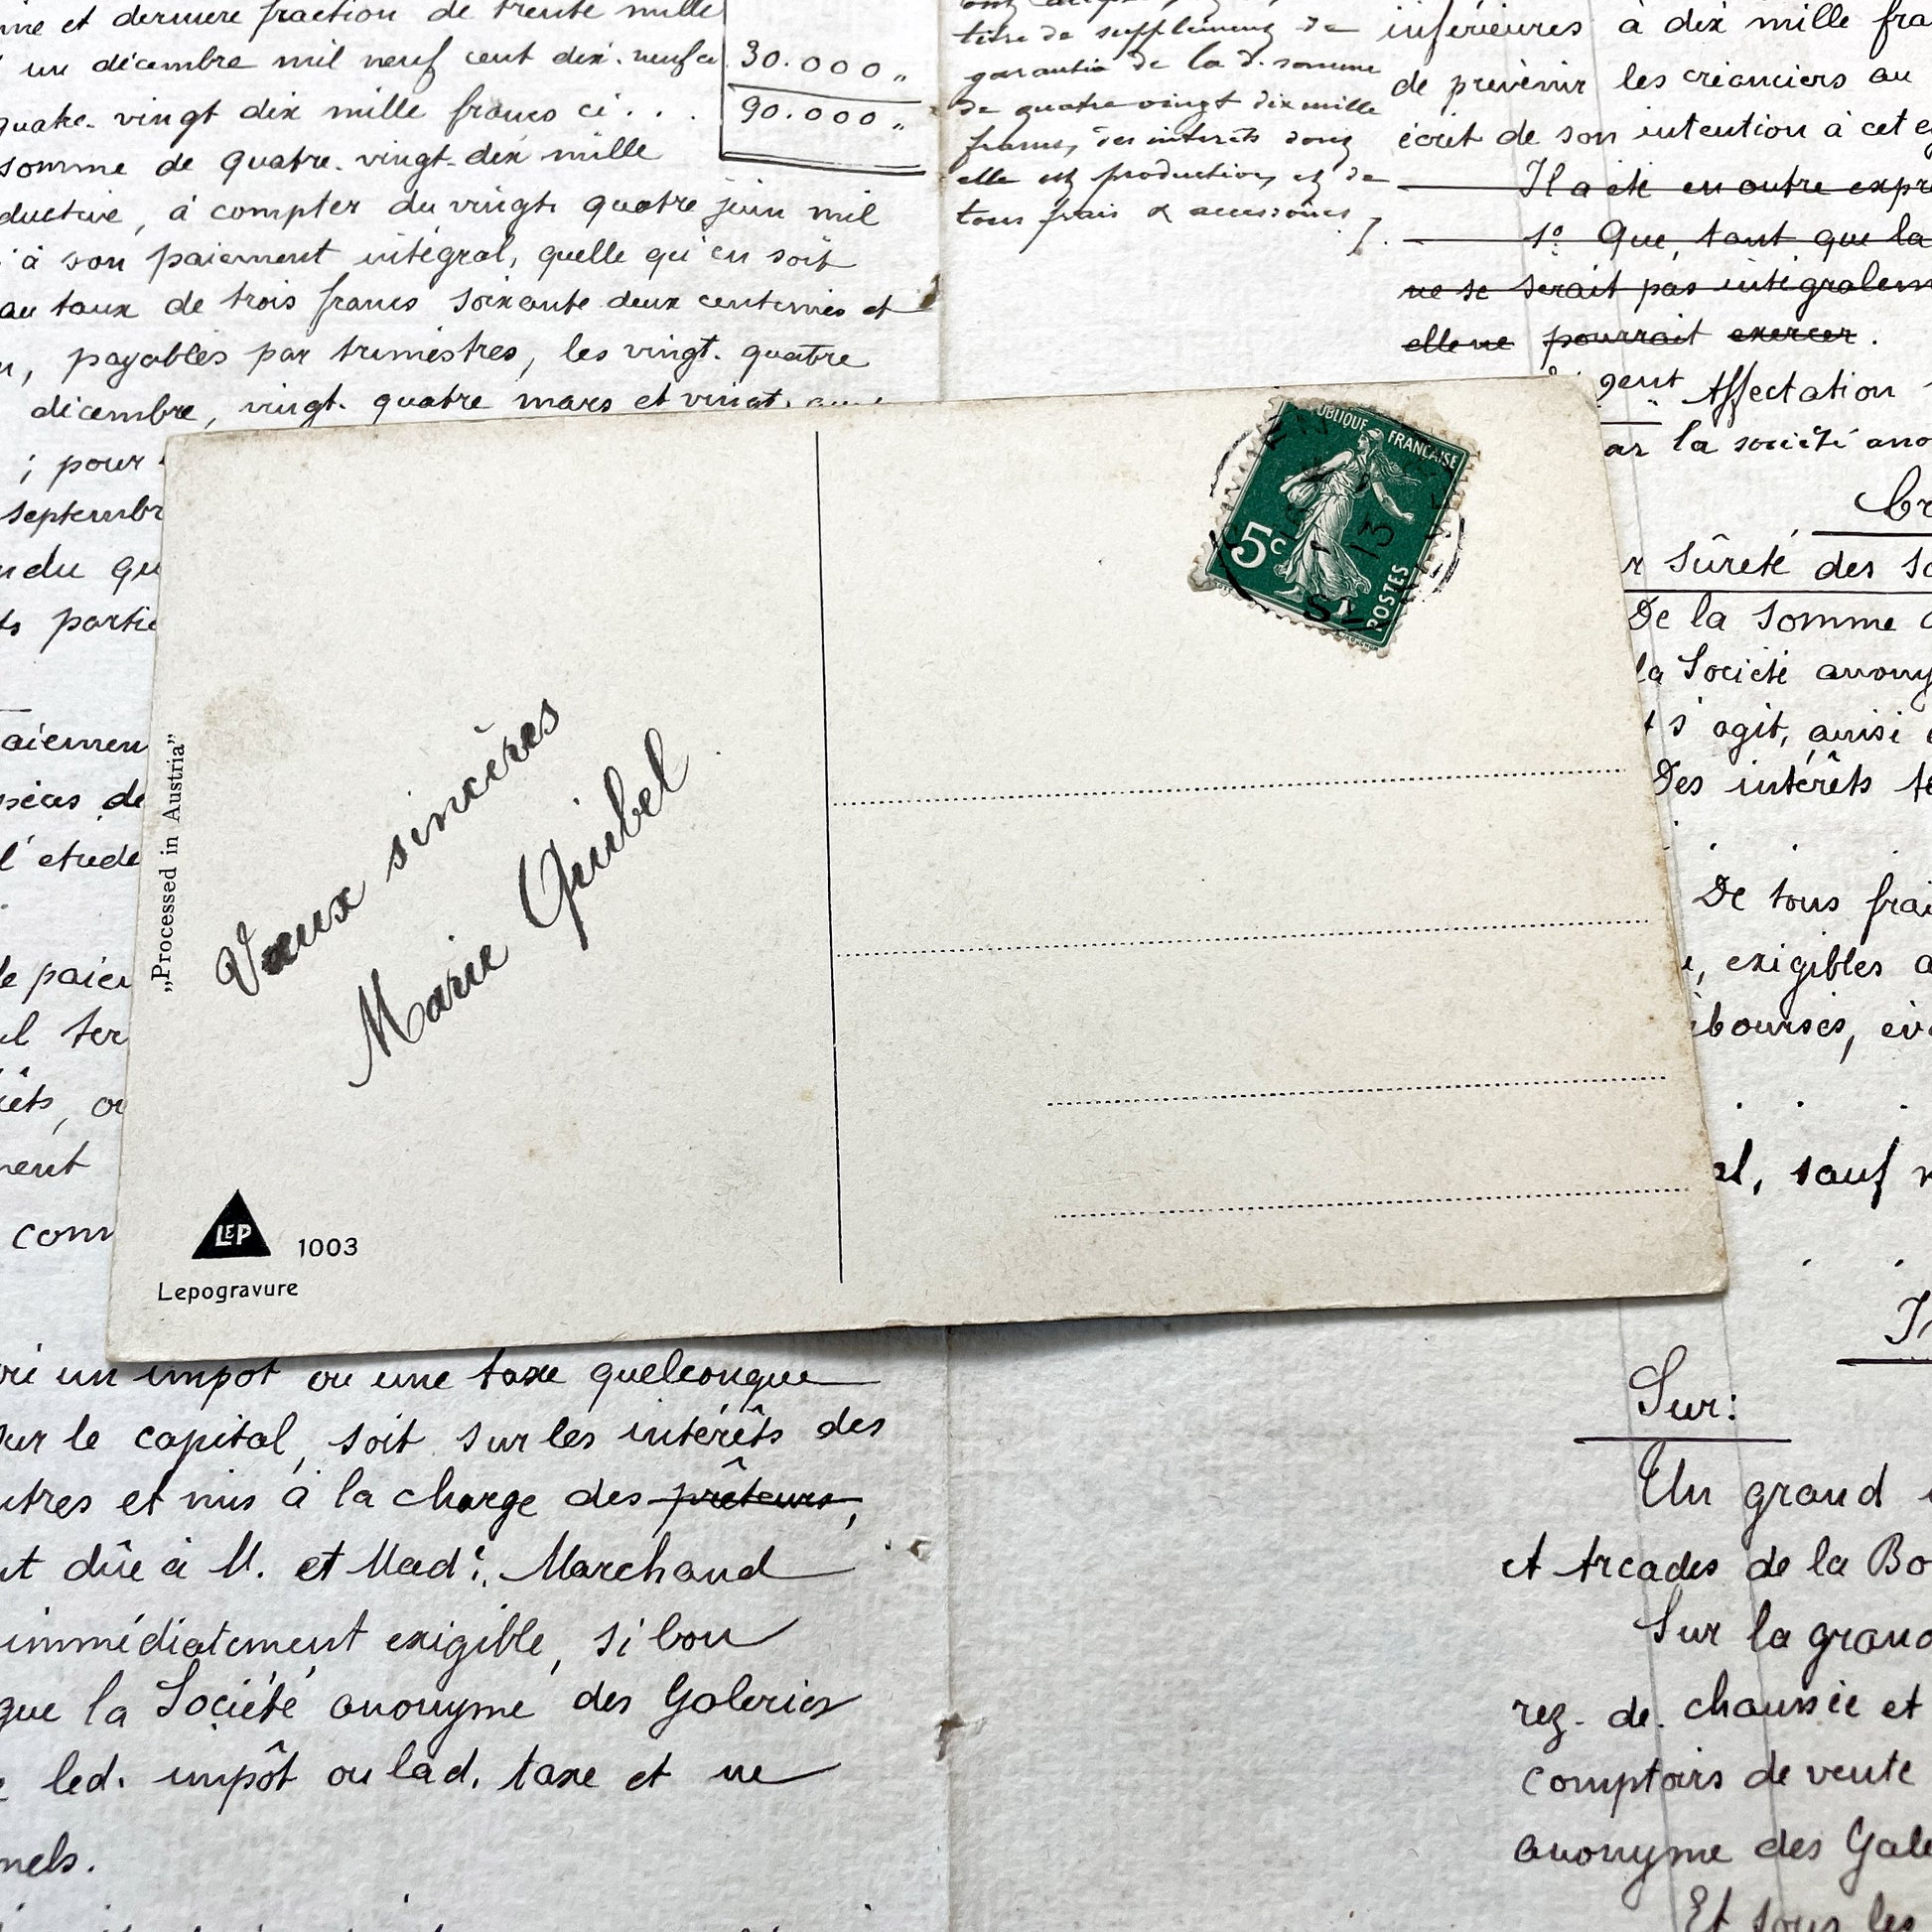 et dernière fraction de trente mille
un décembre mil neuf cent dix-neuf ci 30.000 "
quatre-vingt dix mille francs ci . . . 90.000 "
somme de quatre-vingt-dix mille
à compter du vingt quatre juin mil
à son paiement intégral, quelle qu'en soit
au taux de trois francs soixante deux centimes et
payables par trimestres, les vingt-quatre
décembre, vingt-quatre mars et vingt-
; pour
septembr
aiemen
de
l'etude
le paie
com
titre de supplément de
garantie de la d. somme
de quatre vingt dix mille
francs, des intérêts dont
elle est productive, et de
tous frais & accessoires /.
inférieures à dix mille fra
de prévenir les créanciers au
écrit de son intention à cet eg
Il a été en outre expr
1º Que, tant que la
ne se serait pas intégralem
elle ne pourrait exercer.
gent Affectation
ar la société ano
r sûreté des so
De la somme
la Société anony
s'agit, ainsi
Des intérêts
De tous frai
exigibles
bourses,
al, sauf
RÉPUBLIQUE FRANÇAISE
5c
POSTES
13
„Processed in Austria”
Vœux sincères
Marie Guibel
LEP 1003
Lepogravure
un impôt ou une taxe quelconque
sur le capital, soit sur les intérêts des
utres et mis à la charge des prêteurs,
nt dûe à M. et Made. Marchand
immédiatement exigible, si bon
que la Société anonyme des Galeries
led. impôt ou lad. taxe et ne
nels.
Sur:
Un grand
et Arcades de la Bo
Sur la grand
rez-de-chaussée et
comptoirs de vente
anonyme des Gale
Et sous les